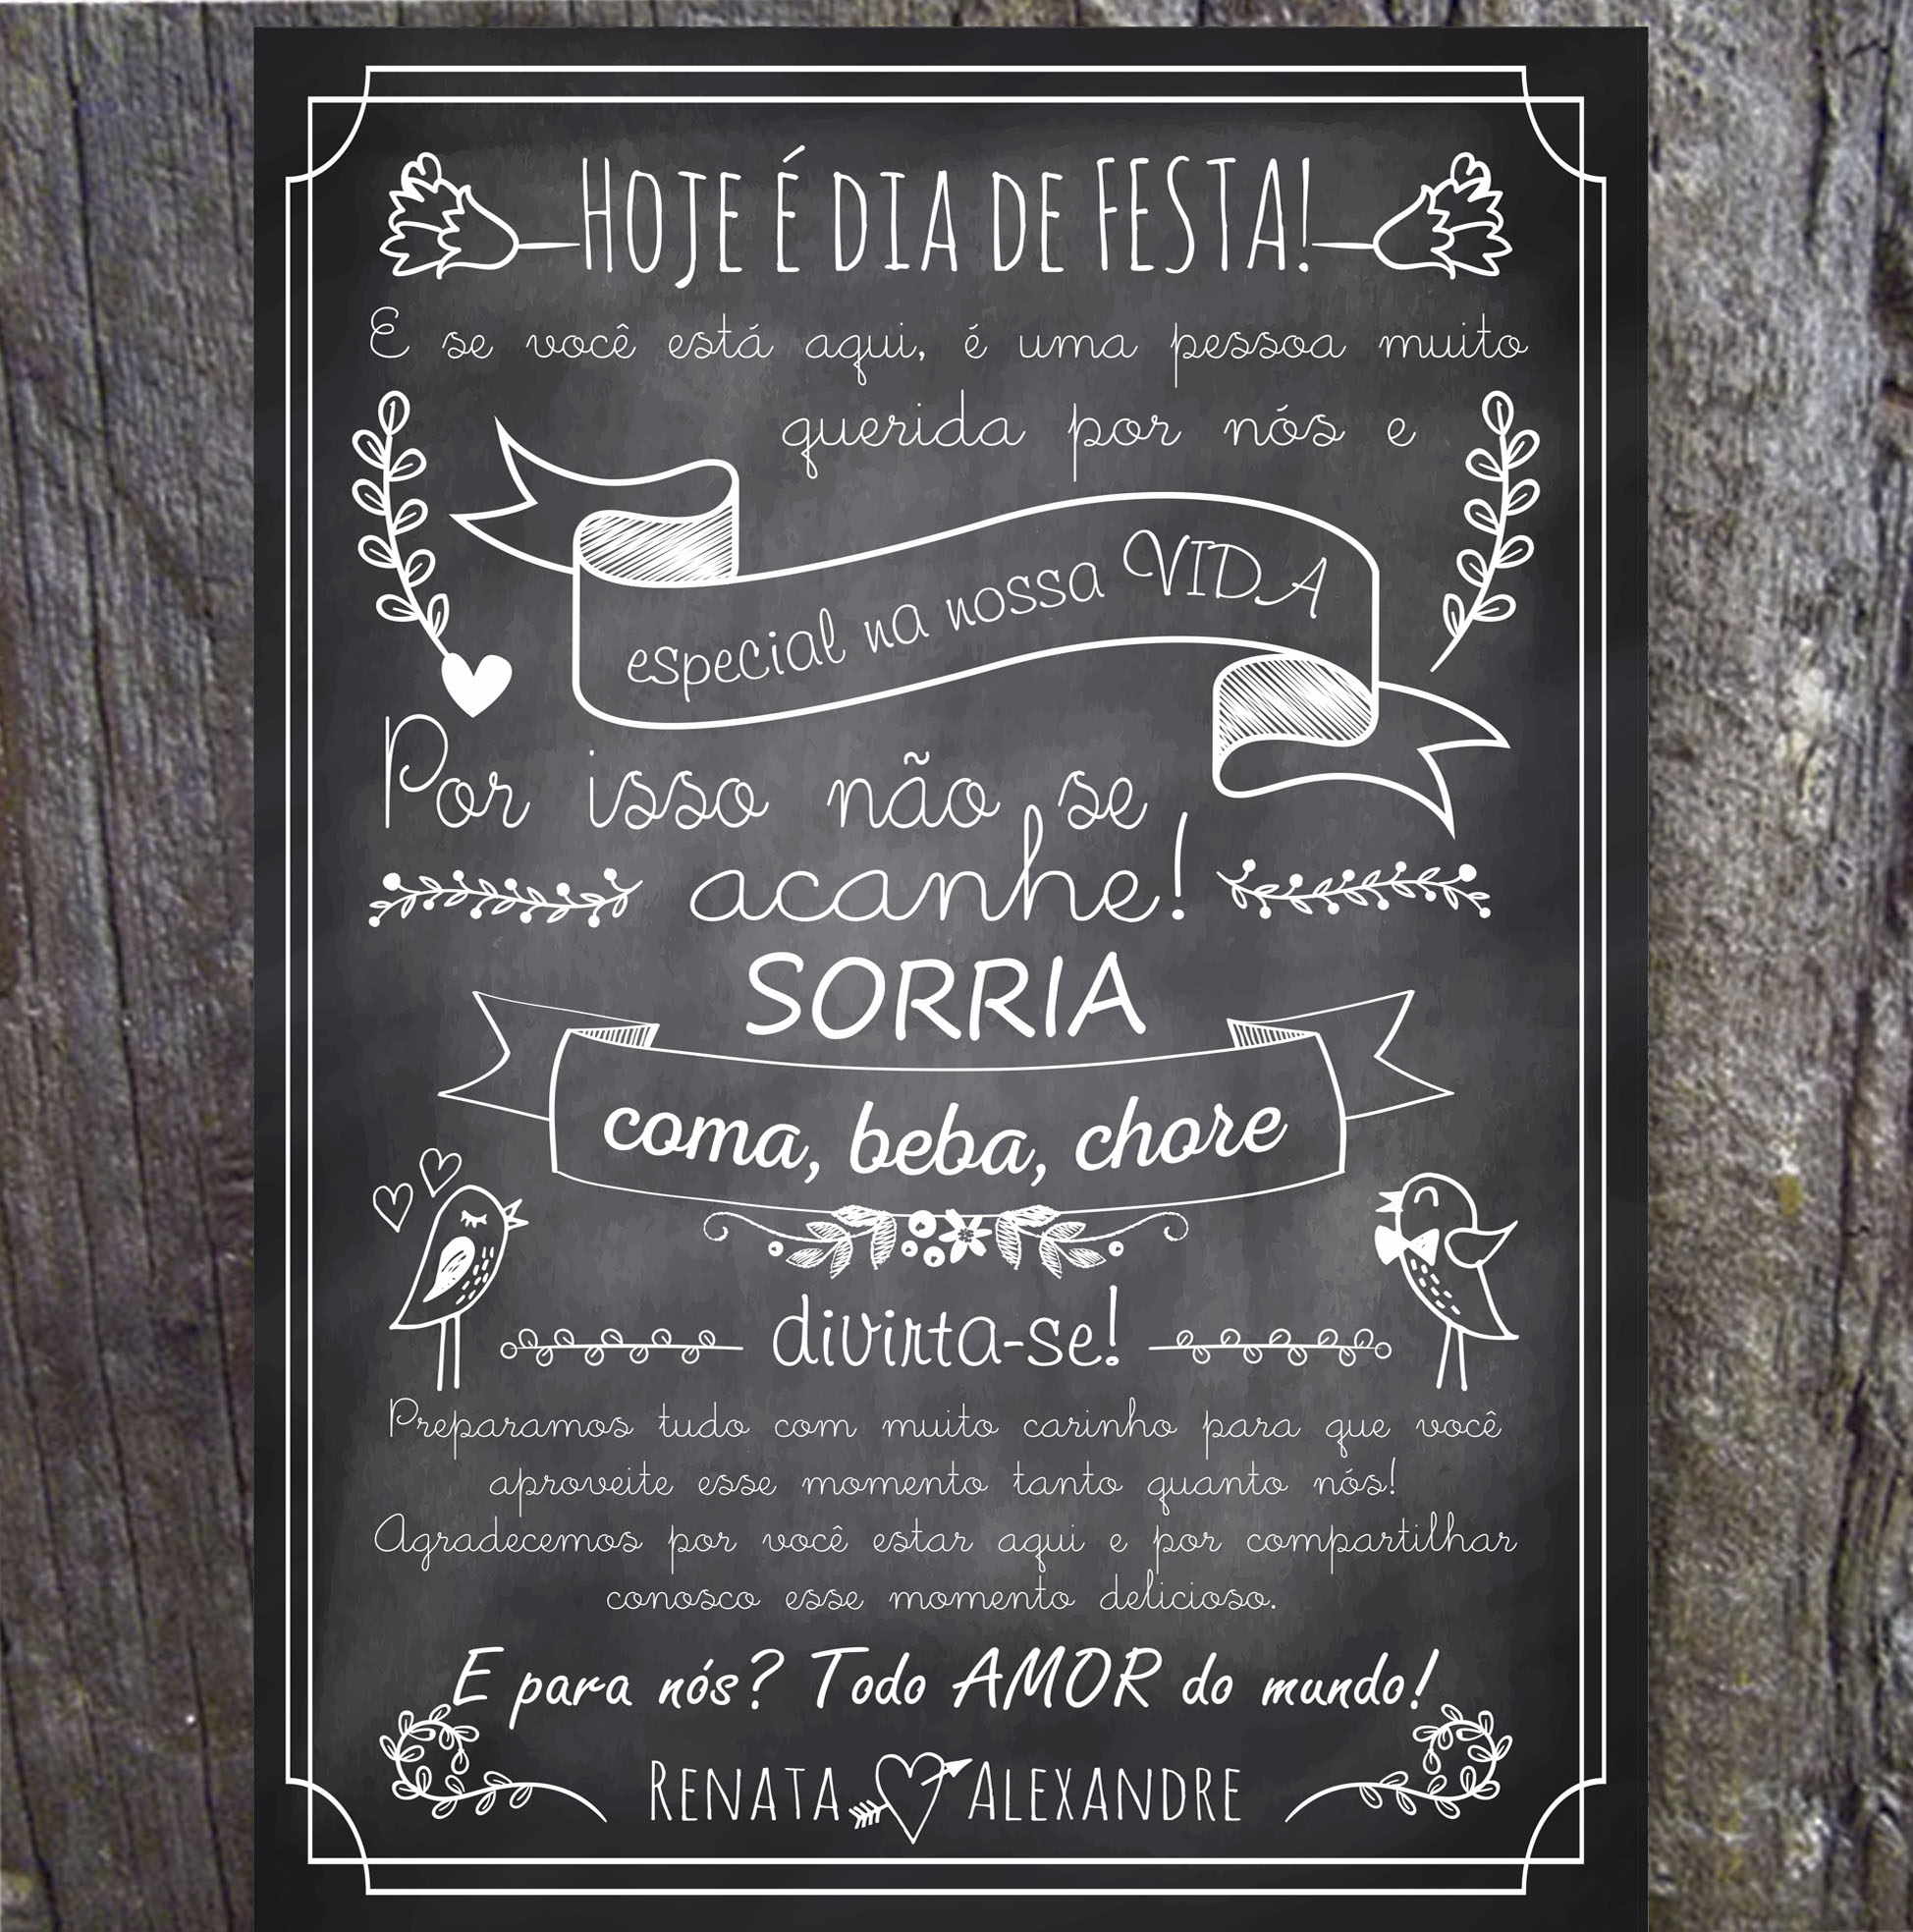 HOJE É DIA DE FESTA!
E se você está aqui, é uma pessoa muito
querida por nós e
especial na nossa VIDA
Por isso não se
acanhe!
SORRIA
coma, beba, chore
divirta-se!
Preparamos tudo com muito carinho para que você
aproveite esse momento tanto quanto nós!
Agradecemos por você estar aqui e por compartilhar
conosco esse momento delicioso.
E para nós? Todo AMOR do mundo!
RENATA ALEXANDRE